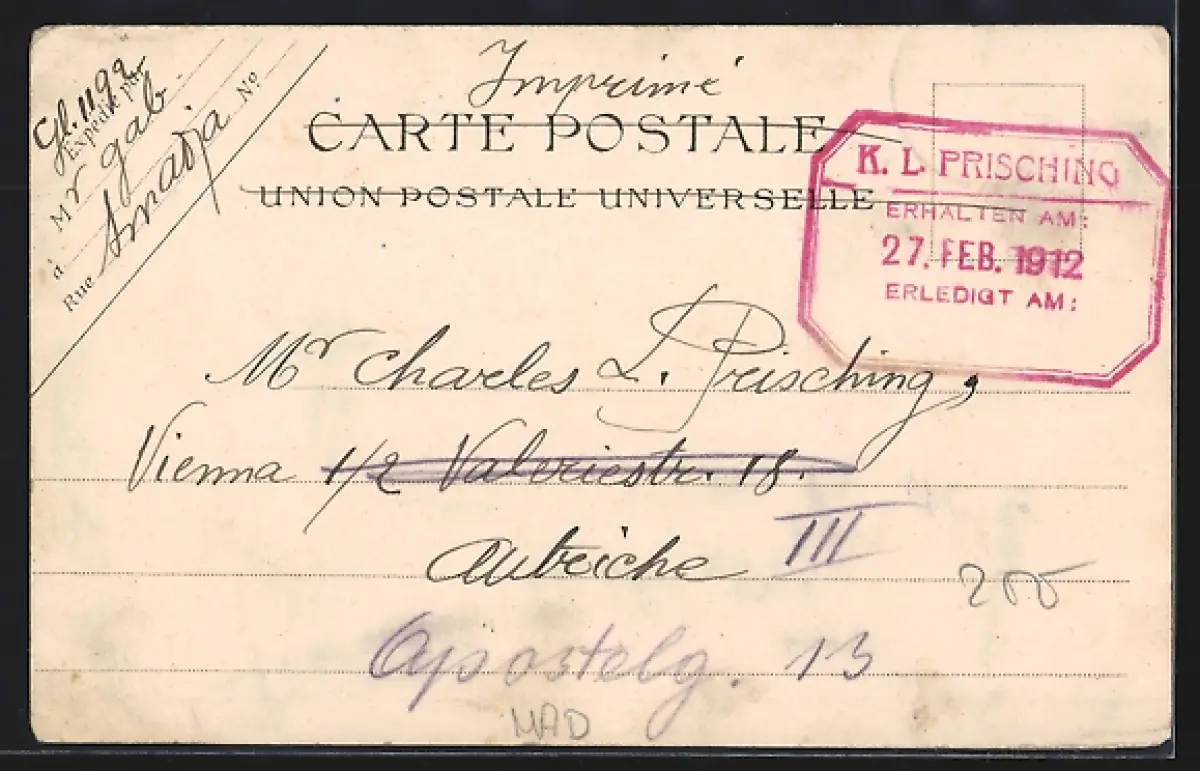 Gl. 1192
Expédié par
Mr gab
à Amadja
Rue Nº
Imprimé
CARTE POSTALE
UNION POSTALE UNIVERSELLE
K. L. PRISCHING
ERHALTEN AM:
27. FEB. 1912
ERLEDIGT AM:
Mr Charles L. Prisching,
Vienna 1/2 Valeriestr. 18.
Autriche III
200
Apostelg. 13
MAD